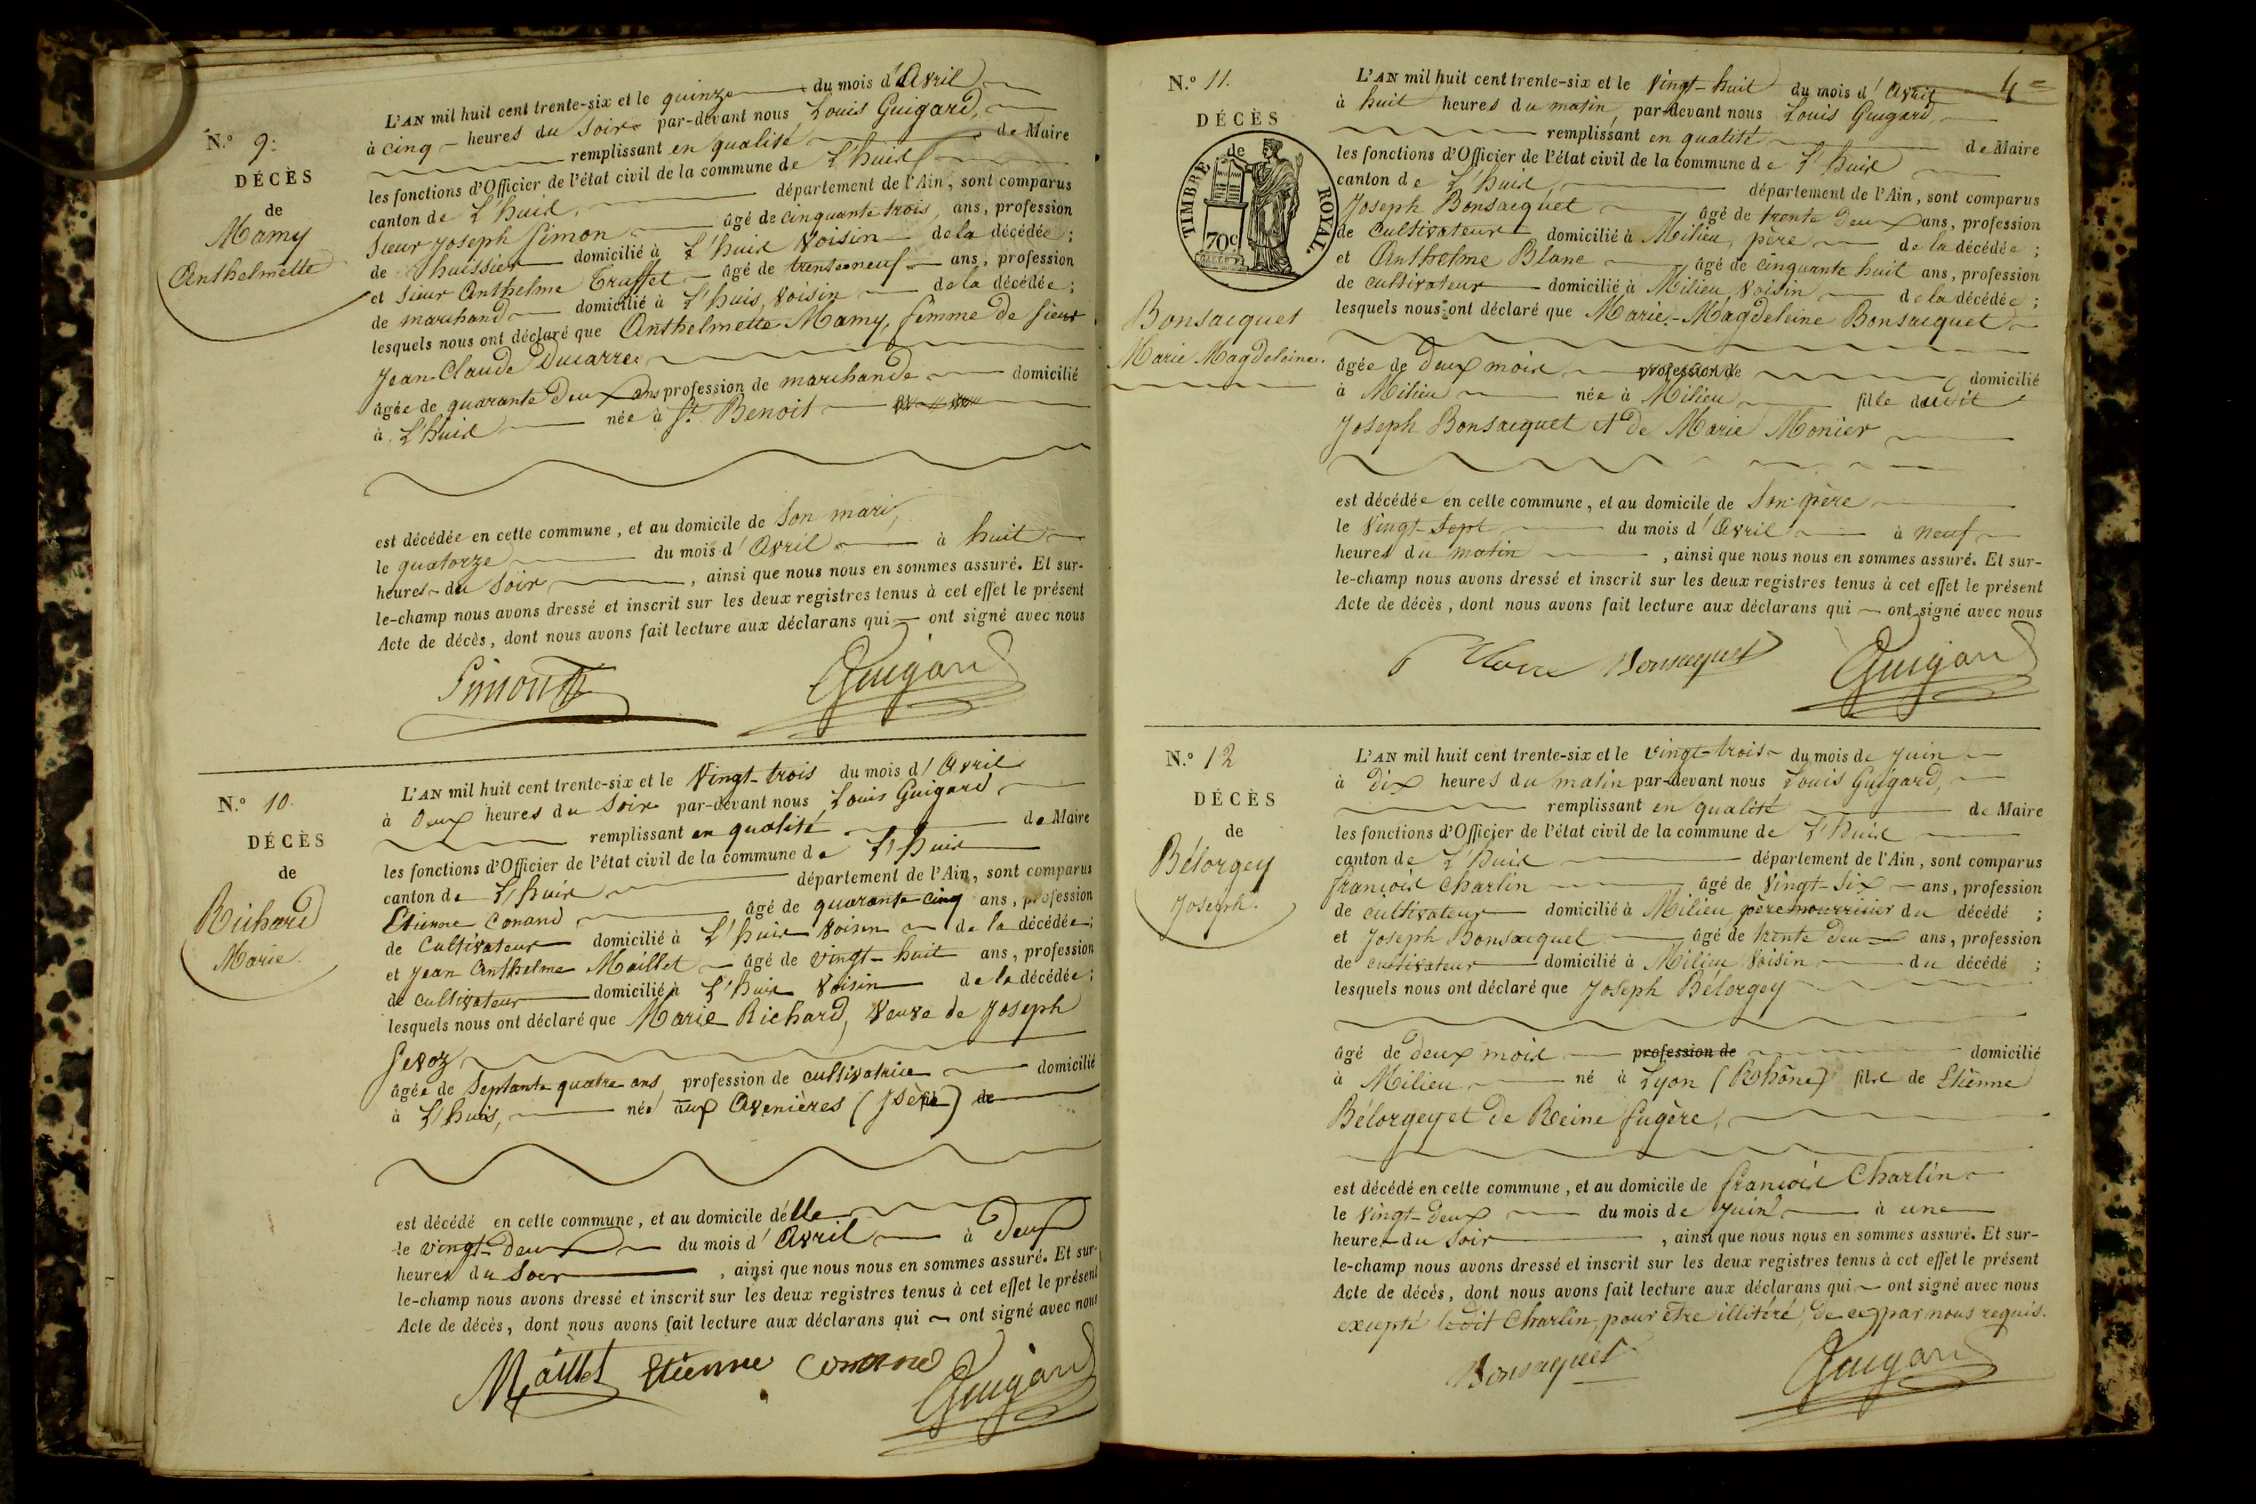 N.° 9.
DÉCÈS
de
Mamy
Anthelmette
L'AN mil huit cent trente-six et le quinze du mois d'Avril
à cinq heures du soir par-devant nous Louis Guigard,
remplissant en qualité de Maire
les fonctions d'Officier de l'état civil de la commune de L'huis
canton de L'huis, département de l'Ain, sont comparus
Sieur Joseph Simon âgé de cinquante trois, ans, profession
de huissier domicilié à L'huis voisin de la décédée ;
et Sieur Anthelme Truffet âgé de trente neuf ans, profession
de marchand domicilié à L'huis, voisin de la décédée ;
lesquels nous ont déclaré que Anthelmette Mamy, femme de Sieur
Jean-Claude Ducarre
âgée de quarante deux ans profession de marchande domicilié
à L'huis née à St. Benoit
est décédée en cette commune, et au domicile de son mari,
le quatorze du mois d'Avril à huit
heures du soir, ainsi que nous nous en sommes assuré. Et sur-
le-champ nous avons dressé et inscrit sur les deux registres tenus à cet effet le présent
Acte de décès, dont nous avons fait lecture aux déclarans qui ont signé avec nous
Simon Guigard
N.° 10.
DÉCÈS
de
Richard
Marie.
L'AN mil huit cent trente-six et le Vingt-trois du mois d'Avril
à deux heures du soir par-devant nous Louis Guigard
remplissant en qualité de Maire
les fonctions d'Officier de l'état civil de la commune de L'huis
canton de L'huis département de l'Ain, sont comparus
Etienne Conand âgé de quarante cinq ans, profession
de Cultivateur domicilié à L'huis voisin de la décédée ;
et Jean Anthelme Maillet âgé de vingt-huit ans, profession
de cultivateur domicilié à L'huis voisin de la décédée ;
lesquels nous ont déclaré que Marie Richard, veuve de Joseph
Sevoz
âgée de septante quatre ans profession de cultivatrice domicilié
à L'huis, née aux Avenières (Isère) de
est décédé en cette commune, et au domicile d'elle
le vingt-deux du mois d'Avril à deux
heures du soir, ainsi que nous nous en sommes assuré. Et sur-
le-champ nous avons dressé et inscrit sur les deux registres tenus à cet effet le présent
Acte de décès, dont nous avons fait lecture aux déclarans qui ont signé avec nous
Maillet Etienne Conand Guigard
4e
N.° 11.
DÉCÈS
de
TIMBRE ROYAL
70c
Bonsacquet
Marie Magdeleine.
L'AN mil huit cent trente-six et le vingt-huit du mois d'Avril
à huit heures du matin, par-devant nous Louis Guigard,
remplissant en qualité de Maire
les fonctions d'Officier de l'état civil de la commune de L'huis
canton de L'huis, département de l'Ain, sont comparus
Joseph Bonsacquet âgé de trente deux ans, profession
de cultivateur domicilié à Milieu, père de la décédée ;
et Anthelme Blanc âgé de cinquante huit ans, profession
de cultivateur domicilié à Milieu voisin de la décédée ;
lesquels nous ont déclaré que Marie-Magdeleine Bonsacquet
âgée de deux mois profession de domicilié
à Milieu née à Milieu fille dudit
Joseph Bonsacquet et de Marie Monier
est décédée en cette commune, et au domicile de son père
le vingt-sept du mois d'Avril à neuf
heures du matin, ainsi que nous nous en sommes assuré. Et sur-
le-champ nous avons dressé et inscrit sur les deux registres tenus à cet effet le présent
Acte de décès, dont nous avons fait lecture aux déclarans qui ont signé avec nous
Bonsaquet Guigard
N.° 12
DÉCÈS
de
Bélorgey
Joseph.
L'AN mil huit cent trente-six et le vingt-trois du mois de Juin
à dix heures du matin par-devant nous Louis Guigard,
remplissant en qualité de Maire
les fonctions d'Officier de l'état civil de la commune de L'huis
canton de L'huis département de l'Ain, sont comparus
françois Charlin âgé de vingt-six ans, profession
de cultivateur domicilié à Milieu père nourricier du décédé ;
et Joseph Bonsacquet âgé de trente deux ans, profession
de cultivateur domicilié à Milieu voisin du décédé ;
lesquels nous ont déclaré que Joseph Bélorgey
âgé de deux mois profession de domicilié
à Milieu né à Lyon (Rhône) fils de Etienne
Bélorgey et de Reine fugère,
est décédé en cette commune, et au domicile de françois Charlin
le vingt-deux du mois de Juin à une
heure du soir, ainsi que nous nous en sommes assuré. Et sur-
le-champ nous avons dressé et inscrit sur les deux registres tenus à cet effet le présent
Acte de décès, dont nous avons fait lecture aux déclarans qui ont signé avec nous
excepté ledit Charlin, pour être illitéré, de ce par nous requis.
Bonsaquet Guigard